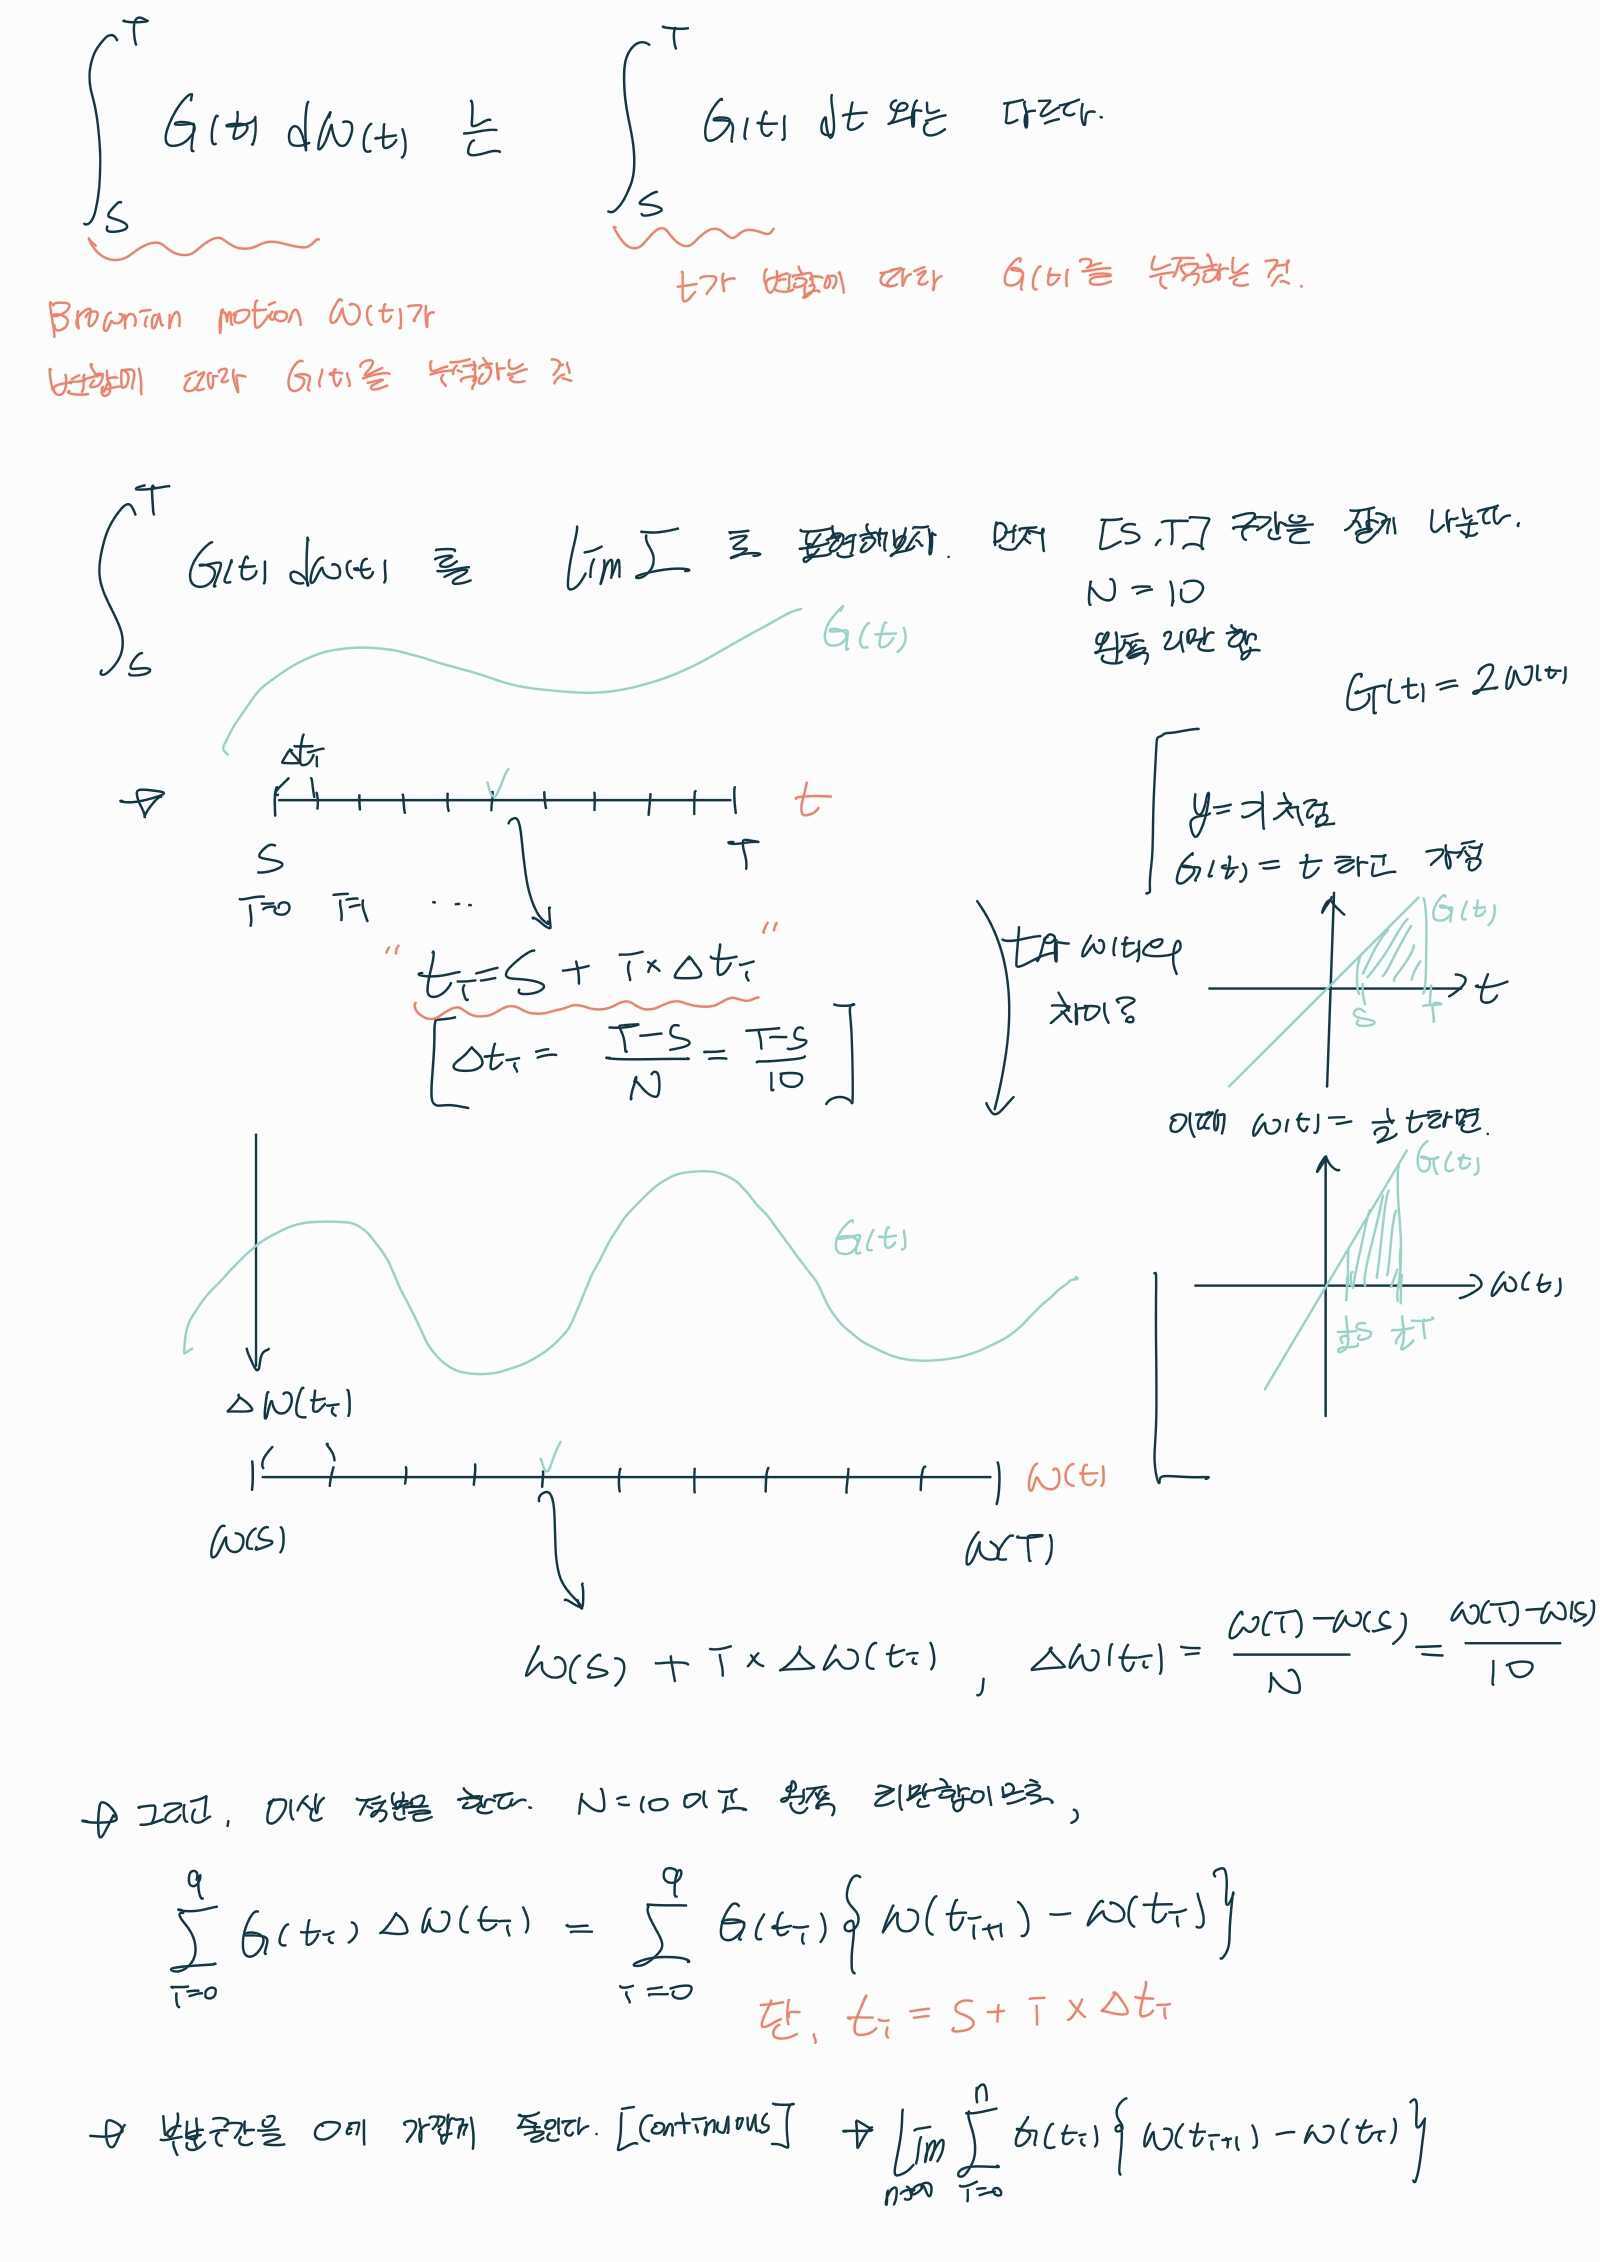 ∫_S^T G(t) dW(t) 는 ∫_S^T G(t) dt 와는 다르다.
t가 변함에 따라 G(t)를 누적하는 것.
Brownian motion W(t)가
변함에 따라 G(t)를 누적하는 것
∫_S^T G(t) dW(t) 를 lim Σ 로 표현해보자. 먼저 [S,T] 구간을 잘게 나눈다.
N = 10
왼쪽 리만 합
G(t)
G(t) = 2W(t)
Δti
→ t
S T
i=0 i=1 ...
"ti = S + i × Δti"
[Δti = (T-S)/N = (T-S)/10]
y = 축
G(t) = t 라고 가정
G(t)
t
S T
t와 W(t)의
차이?
이때 W(t) = ½t라면.
G(t)
W(t)
½S ½T
G(t)
ΔW(ti)
W(t)
W(S) W(T)
W(S) + i × ΔW(ti) , ΔW(ti) = (W(T)-W(S))/N = (W(T)-W(S))/10
→ 그리고, 이산 적분을 한다. N=10 이고 왼쪽 리만합이므로,
Σ_{i=0}^{9} G(ti) ΔW(ti) = Σ_{i=0}^{9} G(ti) { W(ti+1) - W(ti) }
단, ti = S + i × Δti
→ 부분구간을 0에 가깝게 줄인다. [Continuous] → lim_{n→∞} Σ_{i=0}^{n} G(ti) { W(ti+1) - W(ti) }